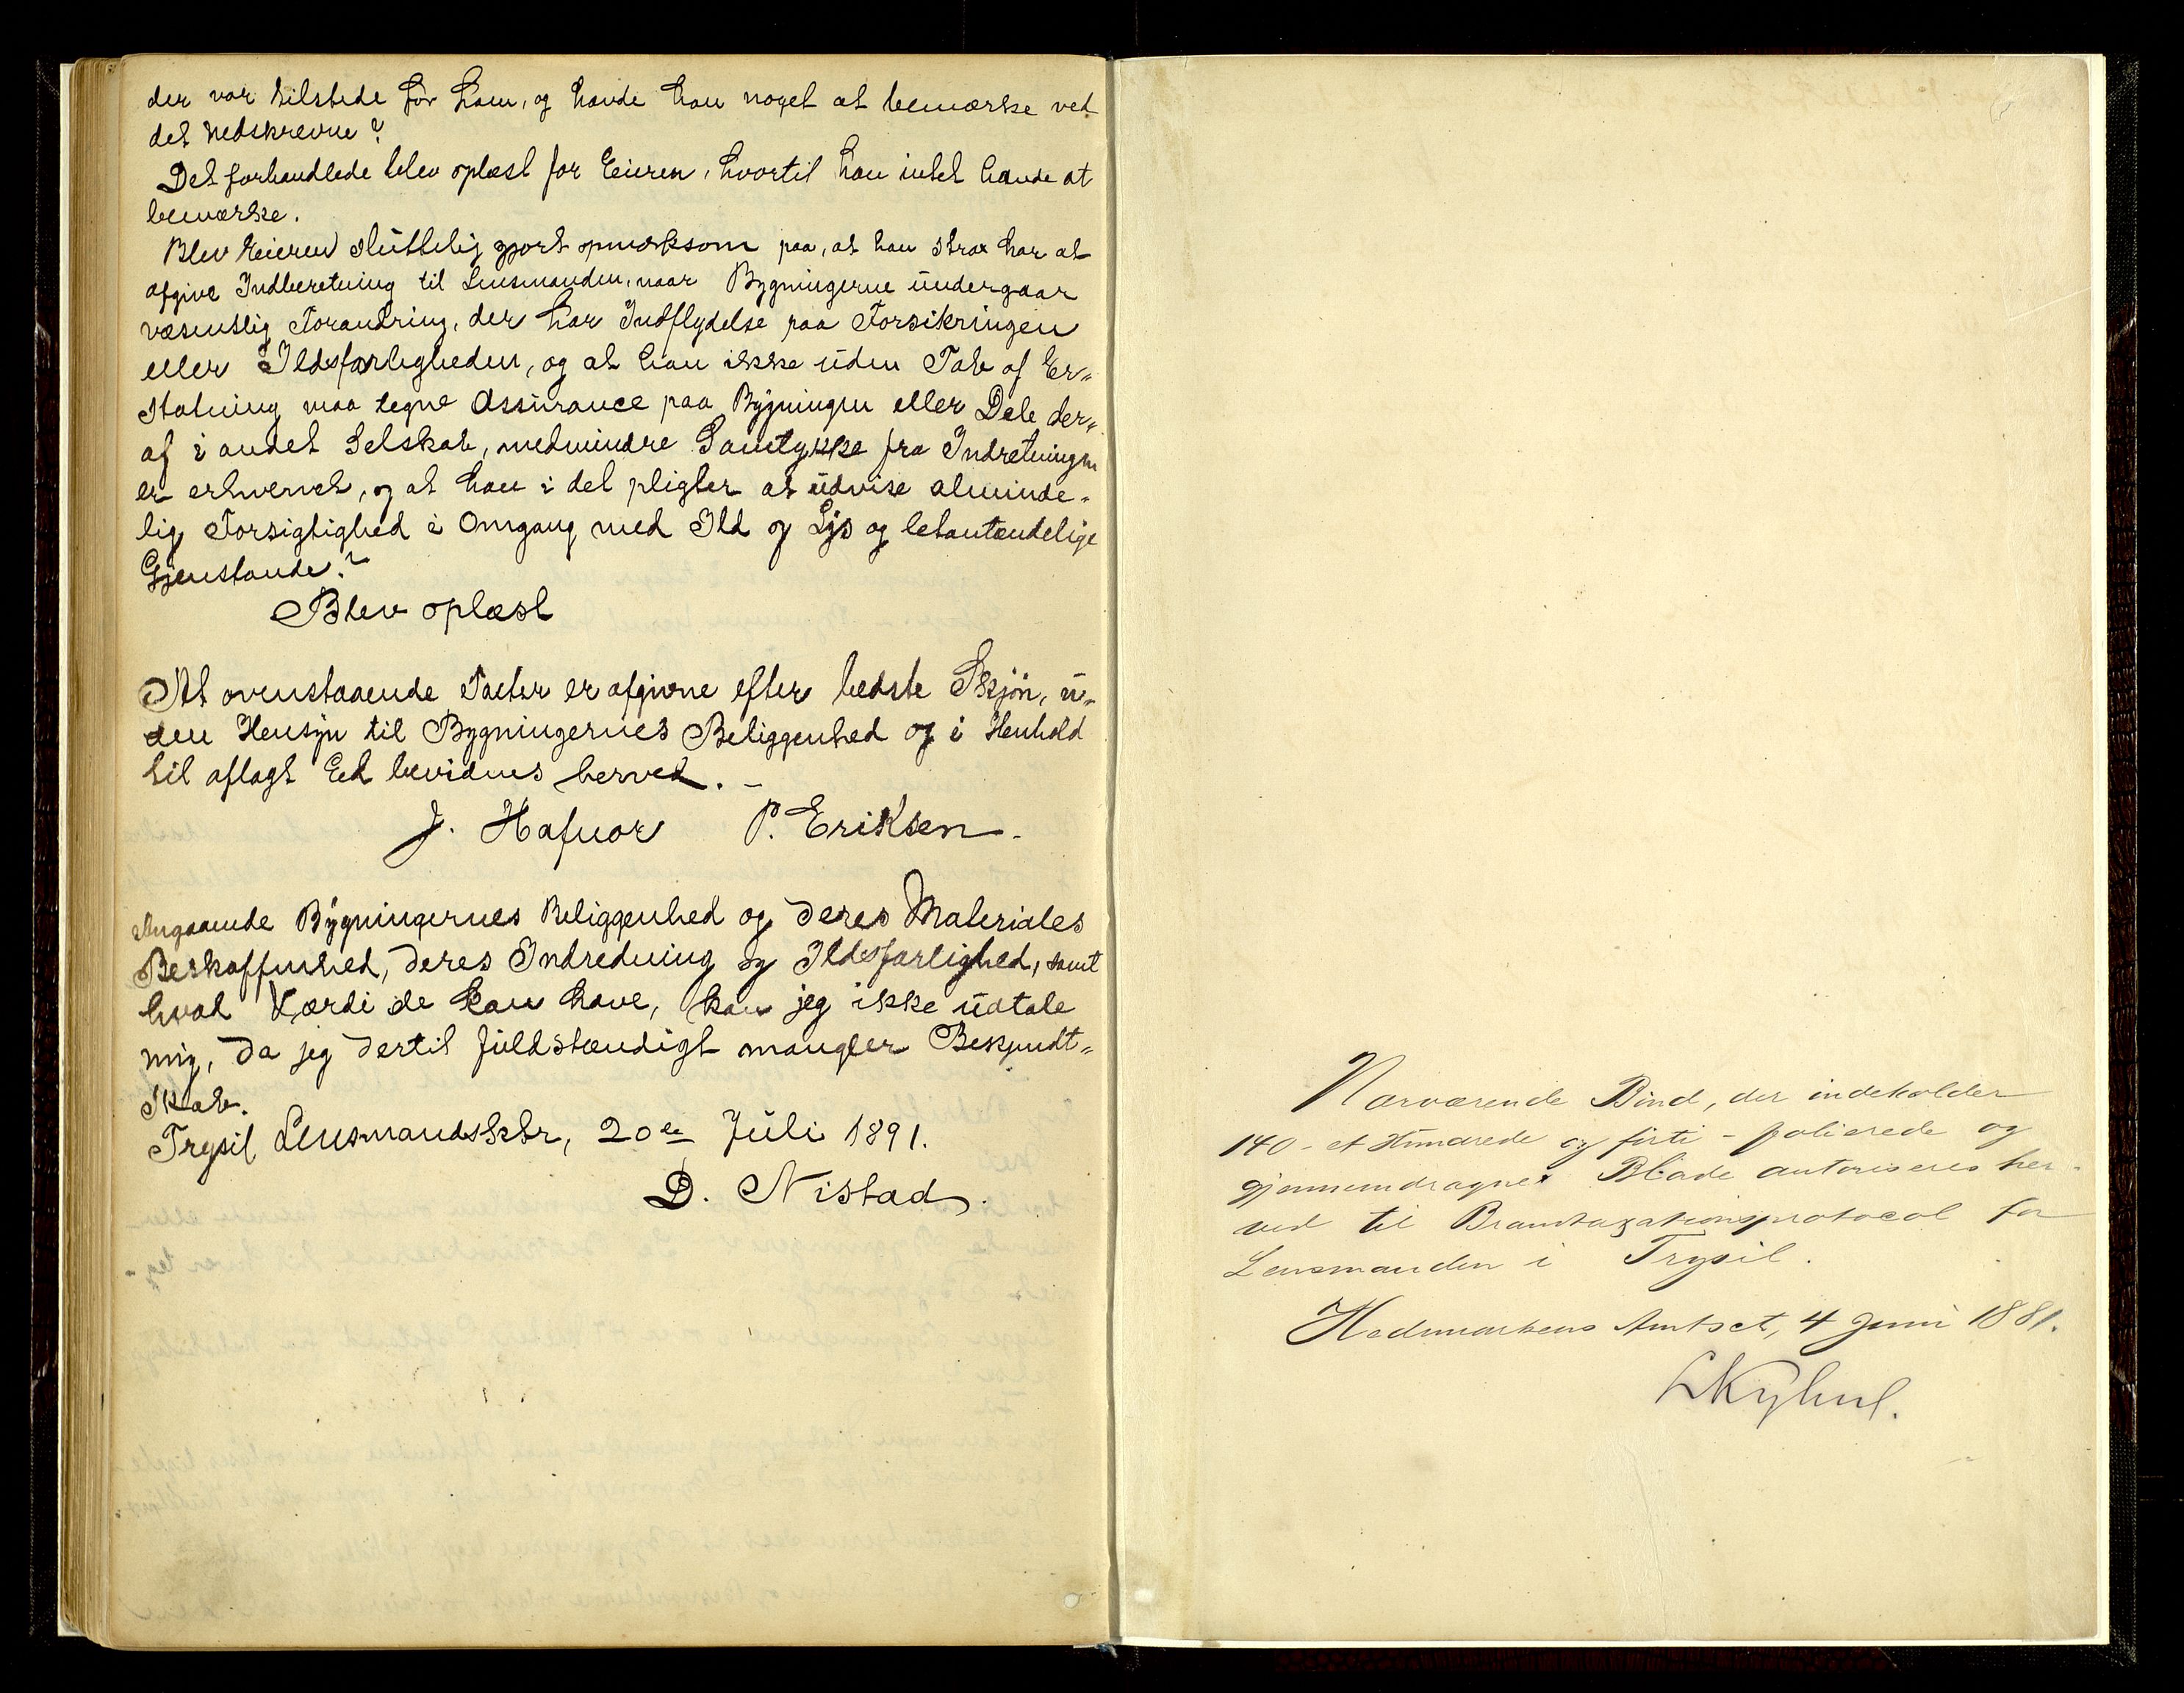 der var tilstede for ham, og havde han noget at bemærke ved
det nedskrevne?
Det forhandlede blev oplæst for Eieren, hvortil han intet havde at
bemærke.
Blev Eieren sluttelig gjort opmærksom paa, at han strax har at
afgive Indberetning til Lensmanden, naar Bygningerne undergaar
væsentlig Forandring, der har Indflydelse paa Forsikringen
eller Ildsfarligheden, og at han ikke uden Tab af Er-
statning maa tegne Assurance paa Bygningen eller Dele der-
af i andet Selskab, medmindre Samtykke fra Indretningen
er erhvervet, og at han i det pligter at udvise alminde-
lig Forsigtighed i Omgang med Ild og Lys og letantændelige
Gjenstande?
Blev oplæst
At ovenstaaende Taxter er afgivne efter bedste Skjøn, u-
den Hensyn til Bygningernes Beliggenhed og i Henhold
til aflagt Ed bevidnes herved. -
J. Hafnor P. Eriksen.
Angaaende Bygningernes Beliggenhed og deres Materiales
Beskaffenhed, deres Indredning og Ildsfarlighed, samt
hvad Værdi de kan have, kan jeg ikke udtale
mig, da jeg dertil fuldstændigt mangler Bekjendt-
skab.
Trysil Lensmandsktr, 20de Juli 1891.
D. Nistad.
Nærværende Bind, der indeholder
140 - et Hundrede og firti - folierede og
gjennemdragne Blade autoriseres her-
ved til Brandtaxationsprotocol for
Lensmanden i Trysil.
Hedemarkens Amtsct, 4 Juni 1881.